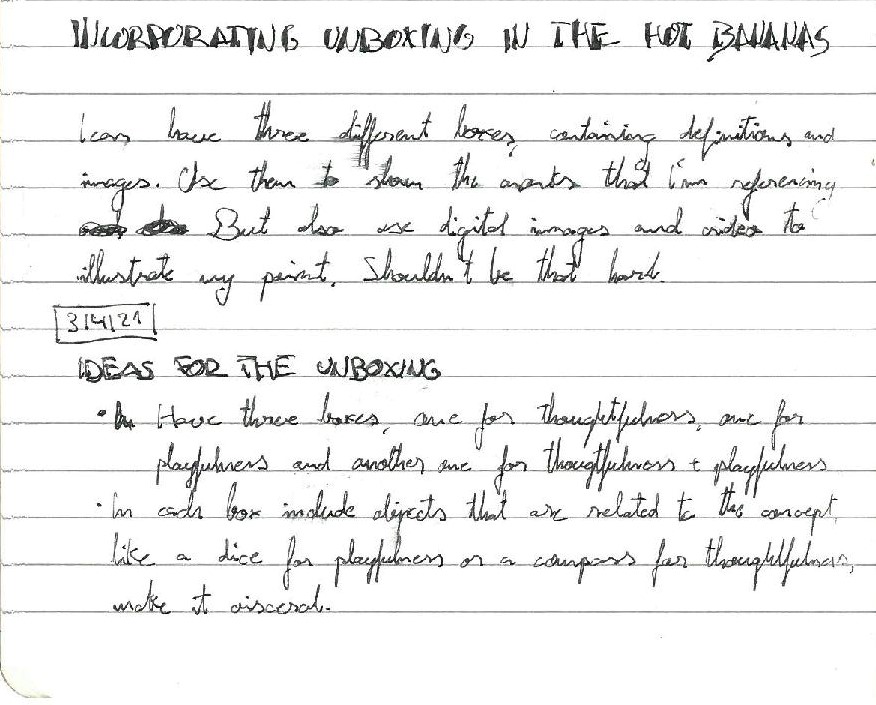 INCORPORATING UNBOXING IN THE HOT BANANAS
I can have three different boxes, containing definitions and
images. Use them to show the that I'm referencing
But also use digital images and video to
illustrate my point. Shouldn't be that hard.
3/4/21
IDEAS FOR THE UNBOXING
• Have three boxes, one for thoughtfulness, one for
playfulness and another one for thougtfulness + playfulness
• In each box include objects that are related to the concept,
like a dice for playfulness or a compass for thoughtfulness,
make it visceral.